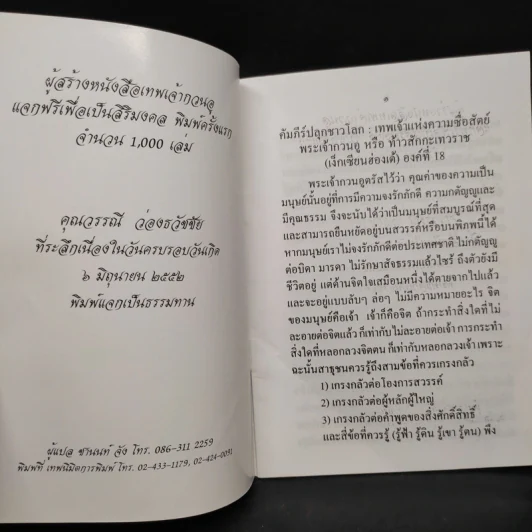 ผู้สร้างหนังสือเทพเจ้ากวนอู
แจกฟรีเพื่อเป็นสิริมงคล พิมพ์ครั้งแรก
จำนวน 1,000 เล่ม
คุณวรรณี ว่องธวัชชัย
ที่ระลึกเนื่องในวันครบรอบวันเกิด
๖ มิถุนายน ๒๕๕๒
พิมพ์แจกเป็นธรรมทาน
ผู้แปล ชานนท์ จัง โทร. 086-311 2259
พิมพ์ที่ เทพนิมิตการพิมพ์ โทร. 02-433-1179, 02-424-0091
คัมภีร์ปลุกชาวโลก : เทพเจ้าแห่งความซื่อสัตย์
พระเจ้ากวนอู หรือ ท้าวสักกะเทวราช
(เง็กเซียนฮ่องเต้) องค์ที่ 18
พระเจ้ากวนอูตรัสไว้ว่า คุณค่าของความเป็น
มนุษย์นั้นอยู่ที่การมีความจงรักภักดี ความกตัญญูและ
มีคุณธรรม จึงจะนับได้ว่าเป็นมนุษย์ที่สมบูรณ์ที่สุด
และสามารถยืนหยัดอยู่บนสวรรค์หรือบนพิภพนี้ได้
หากมนุษย์เราไม่จงรักภักดีต่อประเทศชาติ ไม่กตัญญู
ต่อบิดา มารดา ไม่รักษาสัจธรรมแล้วไซร้ ถึงตัวยังมี
ชีวิตอยู่ แต่ด้านจิตใจเสมือนหนึ่งได้ตายจากไปแล้ว
และจะอยู่แบบลับๆ ล่อๆ ไม่มีความหมายอะไร จิต
ของมนุษย์คือเจ้า เจ้าก็คือจิต ถ้ากระทำสิ่งใดที่ไม่
ละอายต่อจิตแล้ว ก็เท่ากับไม่ละอายต่อเจ้า การกระทำ
สิ่งใดที่หลอกลวงจิตตน ก็เท่ากับหลอกลวงเจ้า เพราะ
ฉะนั้นสาธุชนควรรู้ถึงสามข้อที่ควรเกรงกลัว
1) เกรงกลัวต่อโองการสวรรค์
2) เกรงกลัวต่อผู้หลักผู้ใหญ่
3) เกรงกลัวต่อคำพูดของสิ่งศักดิ์สิทธิ์
และสี่ข้อที่ควรรู้ (รู้ฟ้า รู้ดิน รู้เขา รู้ตน) พึง